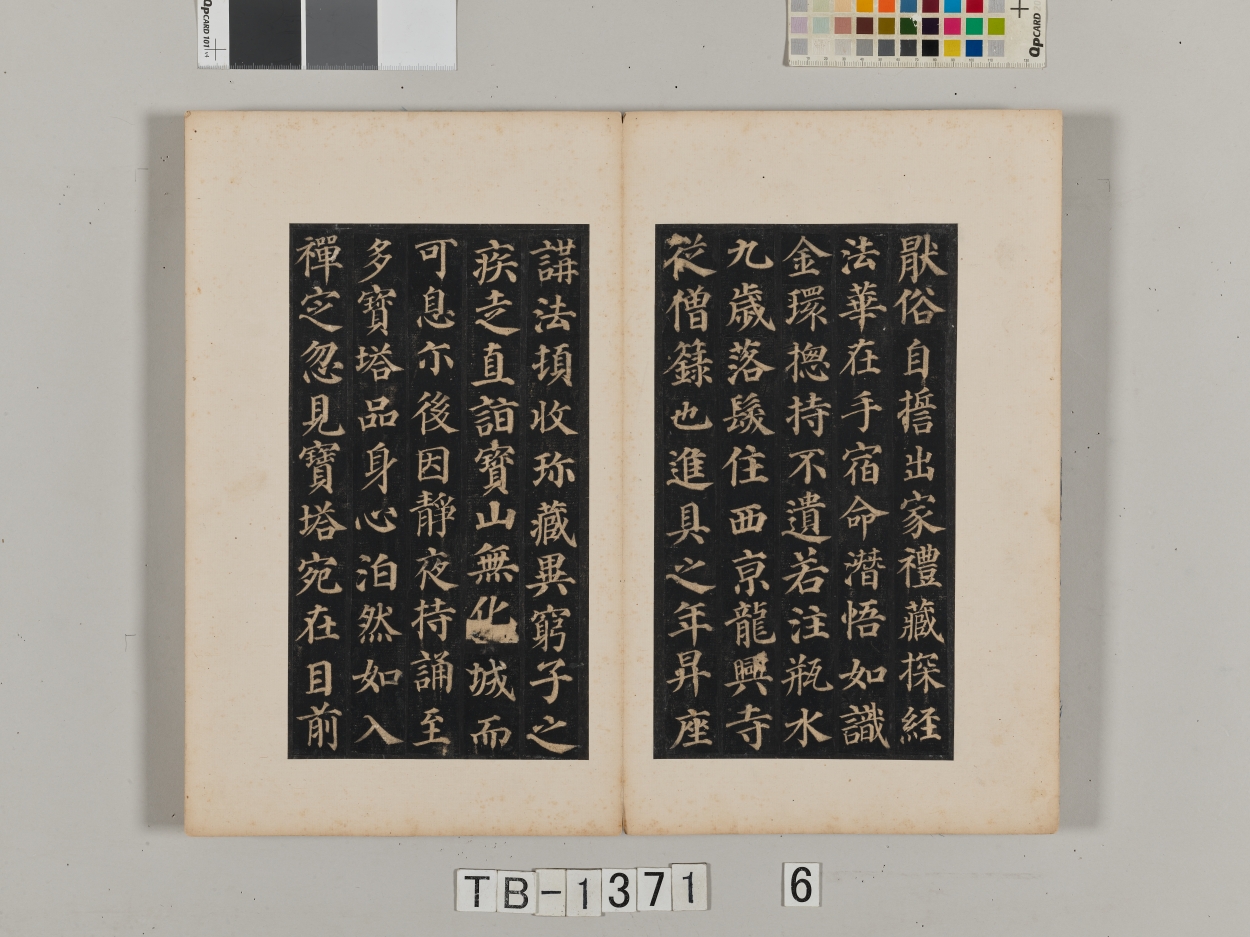 猒俗自擔出家禮藏探経
法華在手宿命潛悟如識
金環揔持不遺若注瓶水
九歲落髮住西京龍興寺
從僧籙也進具之年昇座
講法頓收珎藏異窮子之
疾走直詣寶山無化城而
可息尒後因靜夜持誦至
多寶塔品身心泊然如入
禪定忽見寶塔宛在目前
QPCARD 101
QPCARD
TB-1371 6